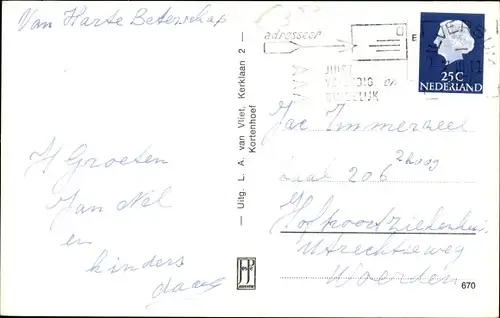 Van Harte Beterschap
H Groeten
Jan Nel
en
kinders
— Uitg. L. A. van Vliet, Kerklaan 2 —
Kortenhoef
adresseer
JUIST
VOLLEDIG en
DUIDELIJK
25C
NEDERLAND
Jac Immerzeel
Zaal 206 2 hoog
Hofpoortziekenhuis
Utrechtseweg
Woerden
670